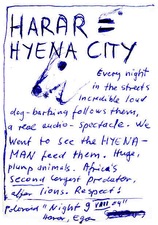 HARAR =
HYENA CITY
Every night
in the streets
incredible loud
dog-barking follows them,
a real audio-spectacle. We
went to see the HYENA-
MAN feed them. Huge,
plump animals. Africa's
second largest predator,
after lions. Respect!
Polaroid "Night 9
Harar,